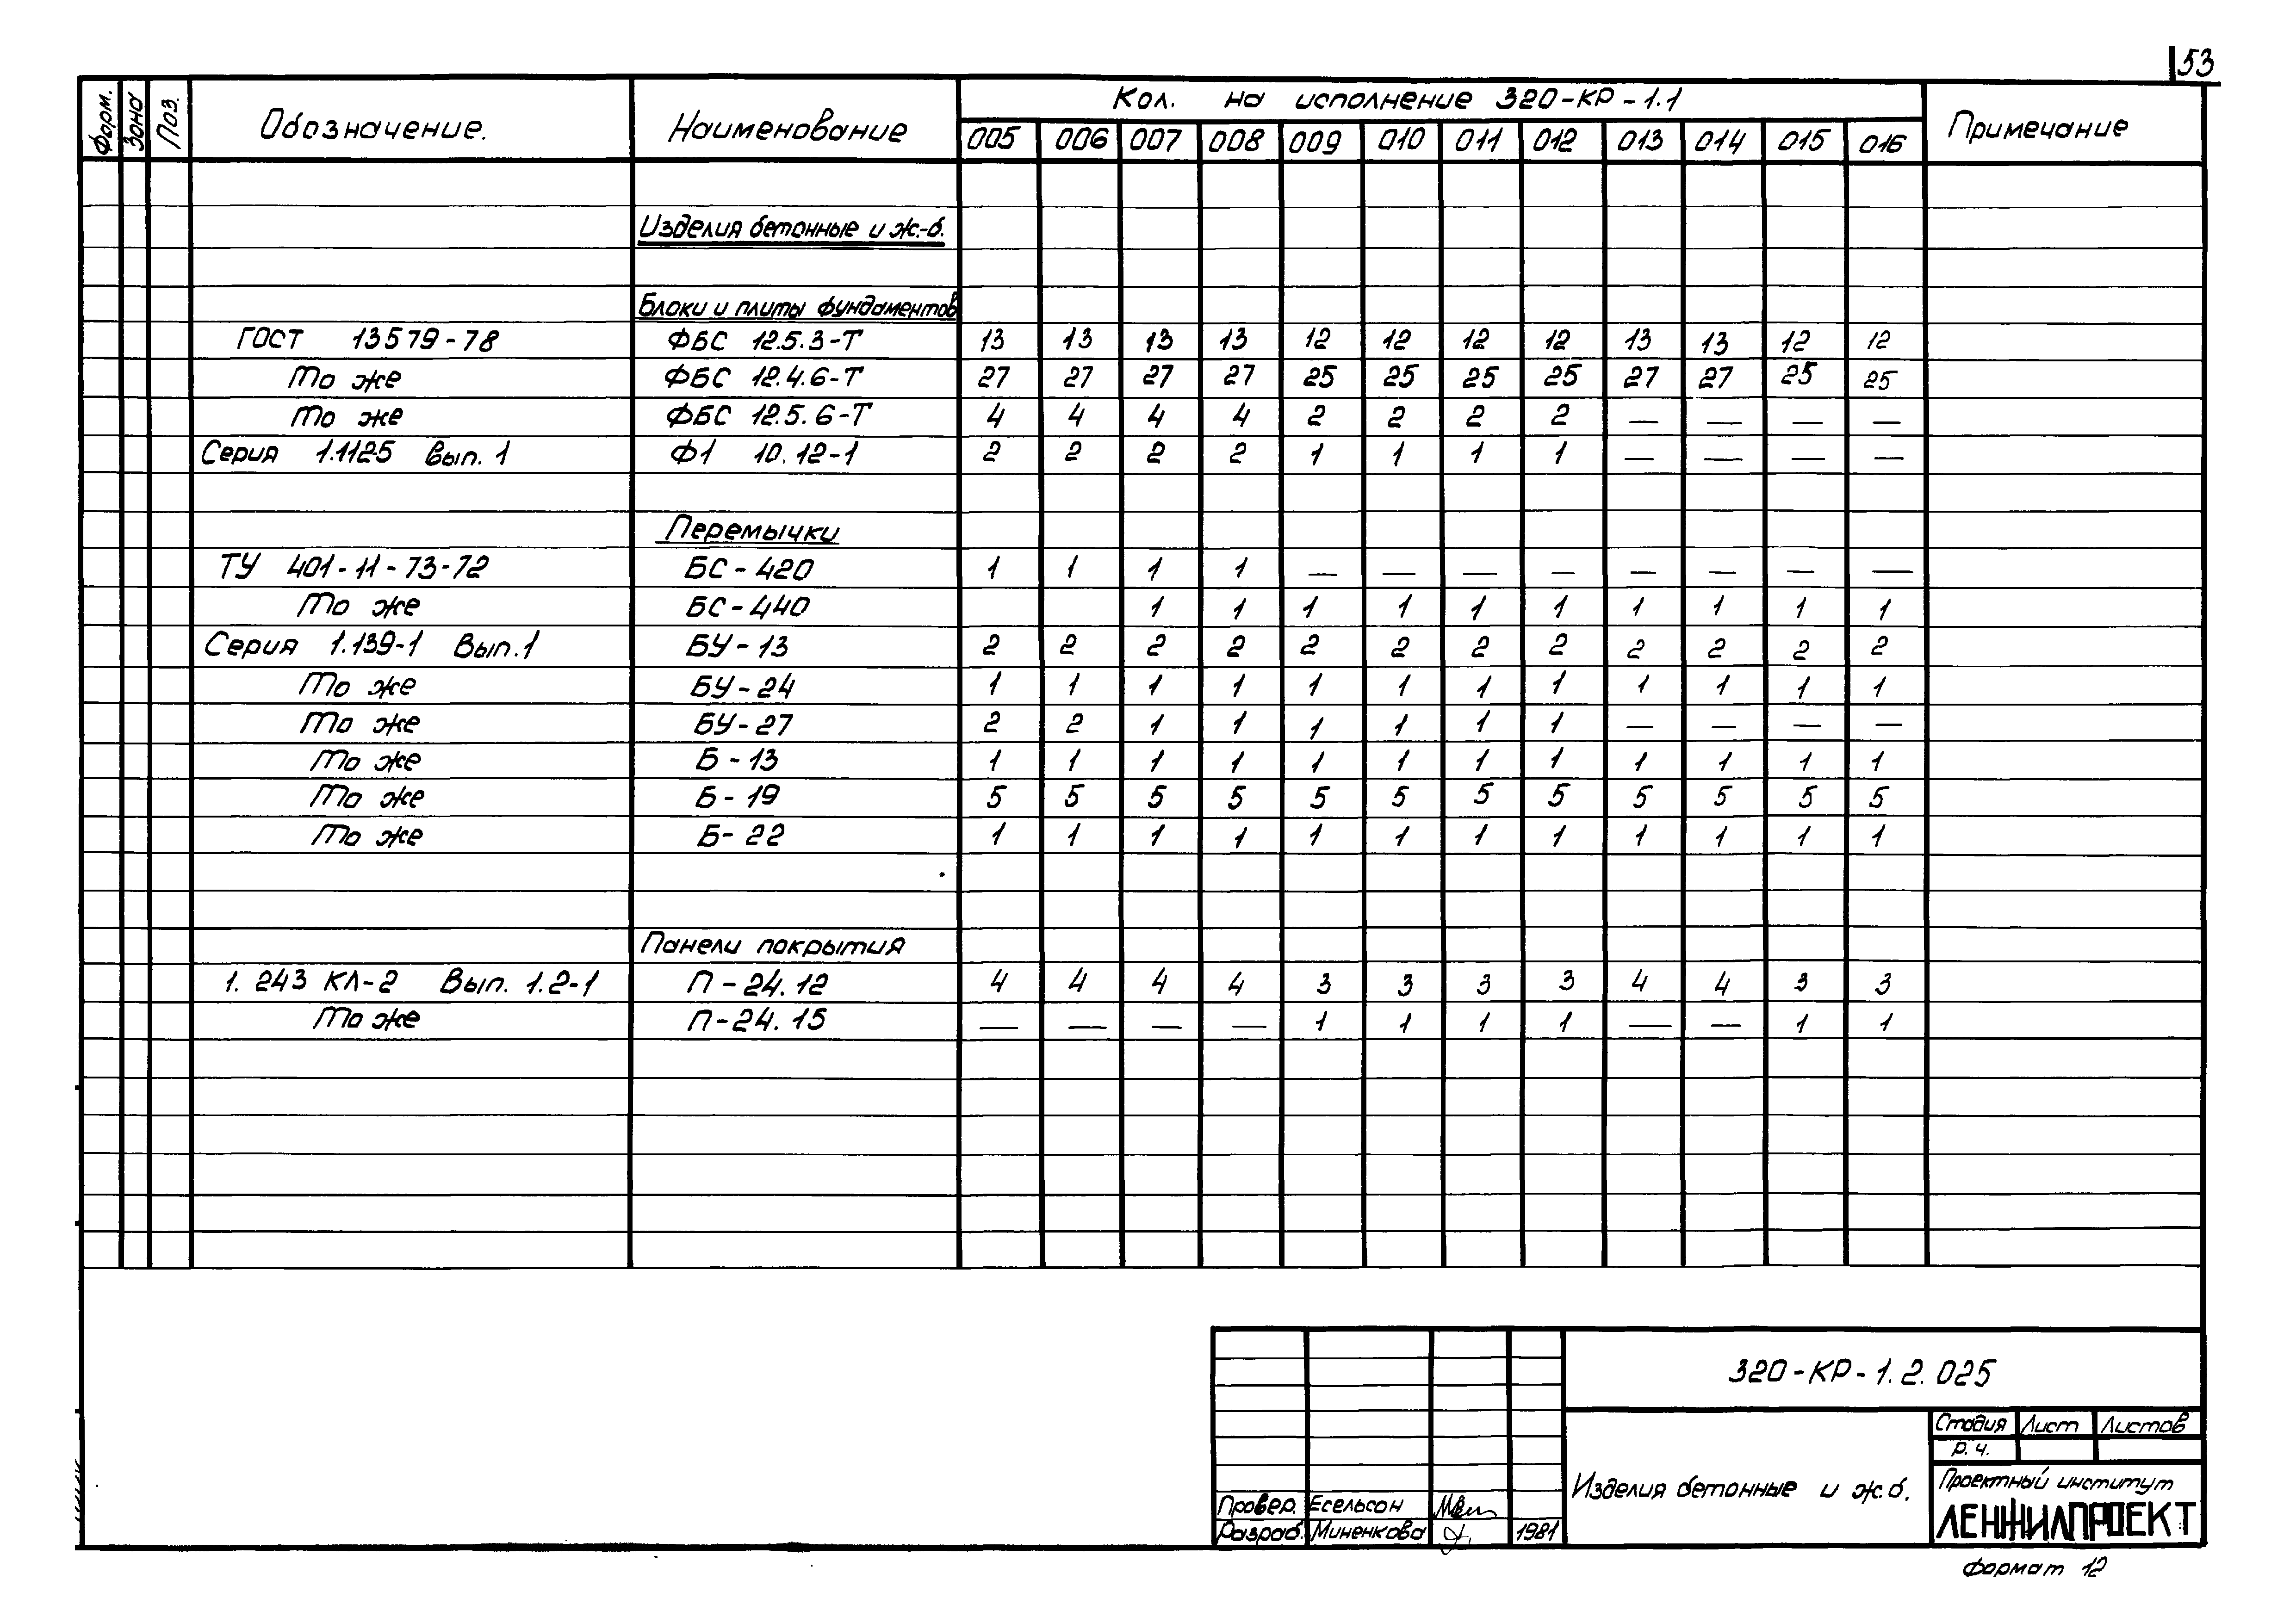 53
Форм. Зона Поз. Обозначение. Наименование Кол. на исполнение 320-КР-1.1 Примечание
005 006 007 008 009 010 011 012 013 014 015 016
Изделия бетонные и ж.-б.
Блоки и плиты фундаментов
ГОСТ 13579-78 ФБС 12.5.3-Т 13 13 13 13 12 12 12 12 13 13 12 12
То же ФБС 12.4.6-Т 27 27 27 27 25 25 25 25 27 27 25 25
То же ФБС 12.5.6-Т 4 4 4 4 2 2 2 2 — — — —
Серия 1.1125 Вып. 1 Ф1 10.12-1 2 2 2 2 1 1 1 1 — — — —
Перемычки
ТУ 401-11-73-72 БС-420 1 1 1 1 — — — — — — — —
То же БС-440 1 1 1 1 1 1 1 1 1 1
Серия 1.139-1 Вып.1 БУ-13 2 2 2 2 2 2 2 2 2 2 2 2
То же БУ-24 1 1 1 1 1 1 1 1 1 1 1 1
То же БУ-27 2 2 1 1 1 1 1 1 — — — —
То же Б-13 1 1 1 1 1 1 1 1 1 1 1 1
То же Б-19 5 5 5 5 5 5 5 5 5 5 5 5
То же Б-22 1 1 1 1 1 1 1 1 1 1 1 1
Панели покрытия
1.243 КЛ-2 Вып. 1.2-1 П-24.12 4 4 4 4 3 3 3 3 4 4 3 3
То же П-24.15 — — — — 1 1 1 1 — — 1 1
320-КР-1.2.025
Стадия Лист Листов
Р.ч.
Изделия бетонные и ж.б.
Проектный институт
ЛЕНЖИЛПРОЕКТ
Провер. Есельсон
Разраб. Миненкова 1981
Формат 12